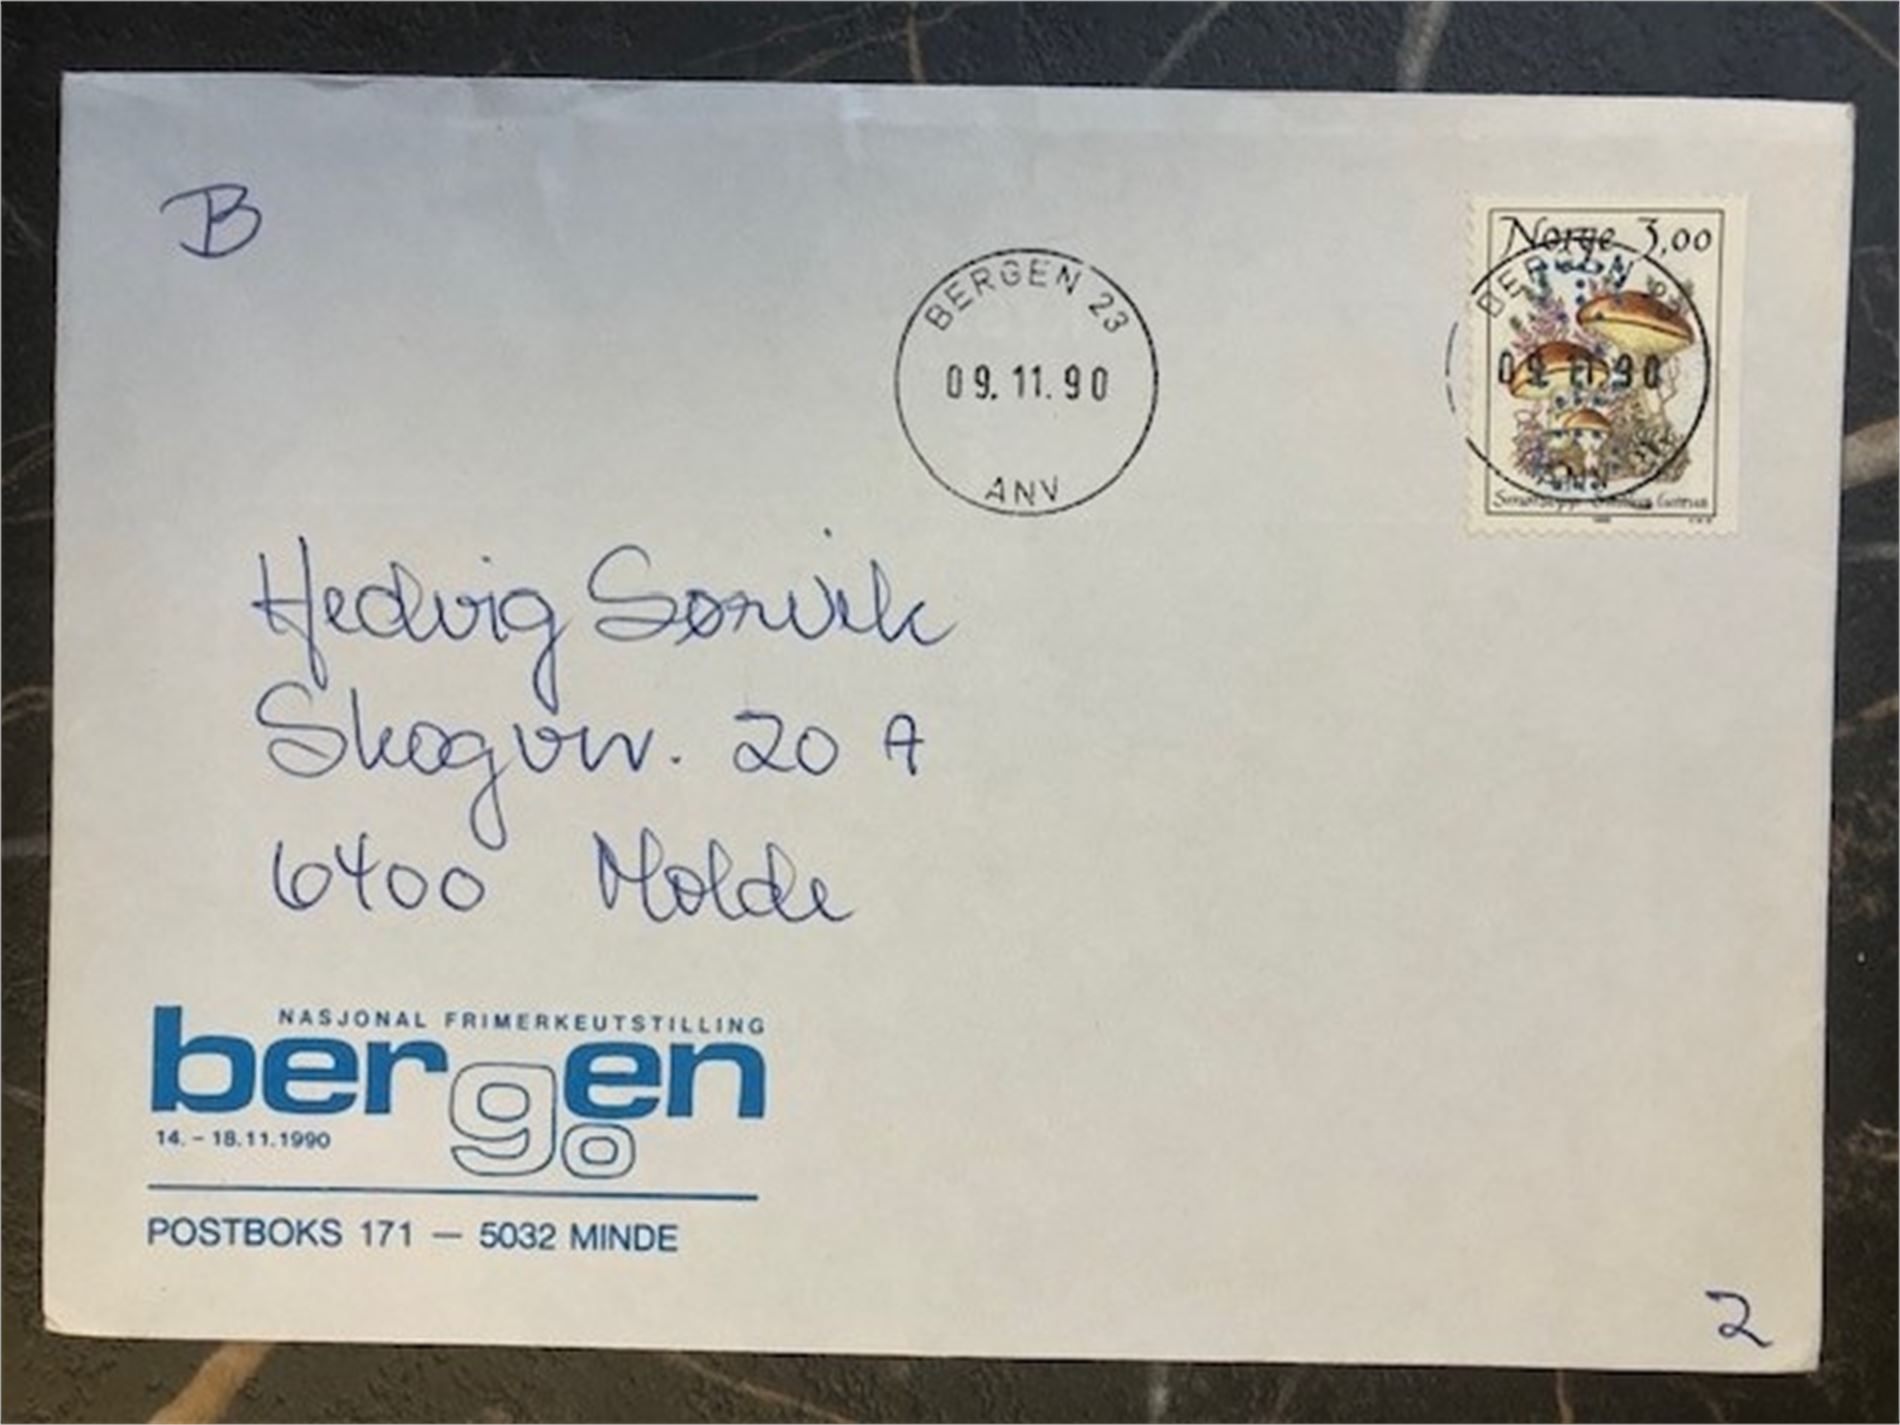 B
BERGEN 23
09.11.90
ANV
Norge 3,00
BERGEN 23
09.11.90
ANV
Smørsopp Suillus luteus
Hedvig Sørvik
Skogvn. 20 A
6400 Molde
NASJONAL FRIMERKEUTSTILLING
bergen
90
14. - 18.11.1990
POSTBOKS 171 — 5032 MINDE
2